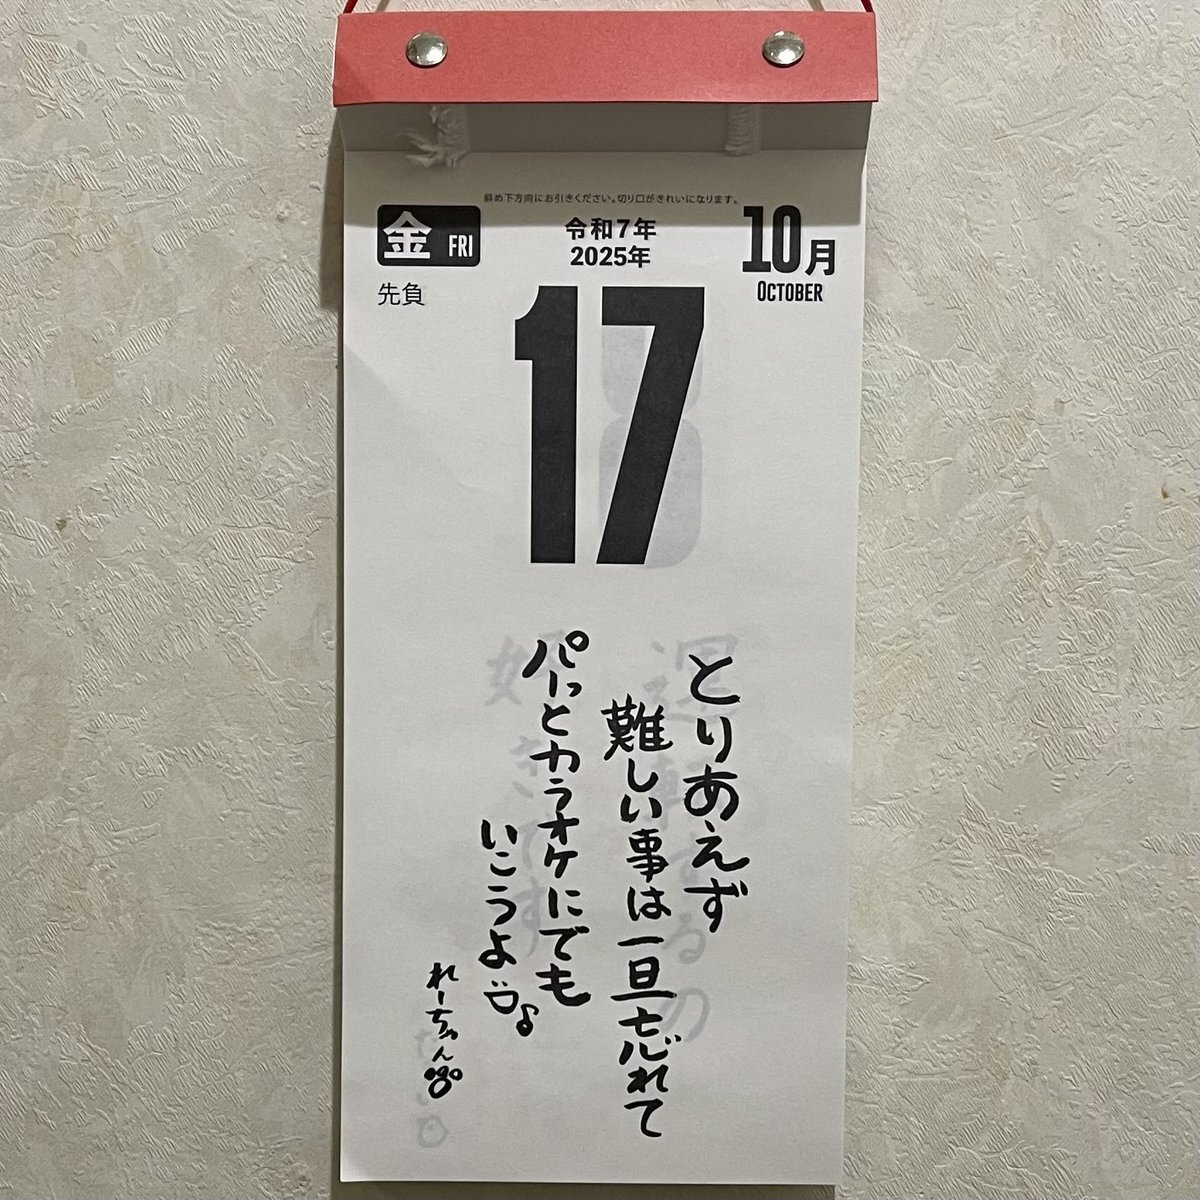 斜め下方向にお引きください。切り口がきれいになります。
金 FRI
令和7年
2025年
10月
OCTOBER
先負
17
とりあえず
難しい事は一旦忘れて
パーっとカラオケにでも
いこうよ
れーちゃん